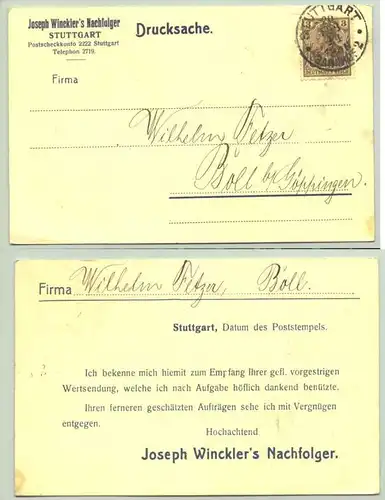 Joseph Winckler's Nachfolger
STUTTGART
Postscheckkonto 2222 Stuttgart
Telephon 2719.
Drucksache.
STUTTGART
3
Firma
Wilhelm Fetzer
Böll b/ Göppingen.
Firma Wilhelm Fetzer, Böll.
Stuttgart, Datum des Poststempels.
Ich bekenne mich hiemit zum Empfang Ihrer gefl. vorgestrigen
Wertsendung, welche ich nach Aufgabe höflich dankend benützte.
Ihren ferneren geschätzten Aufträgen sehe ich mit Vergnügen
entgegen.
Hochachtend
Joseph Winckler's Nachfolger.